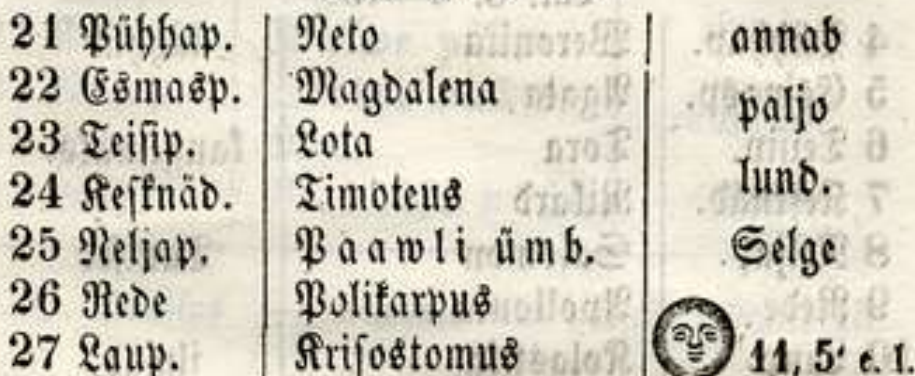 21 Pühhap. Neto annab
22 Esmasp. Magdalena paljo
23 Teisip. Lota
24 Kesknäd. Timoteus lund.
25 Neljap. Paawli ümb. Selge
26 Rede Polikarpus
27 Laup. Krisostomus 11, 5' e. l.